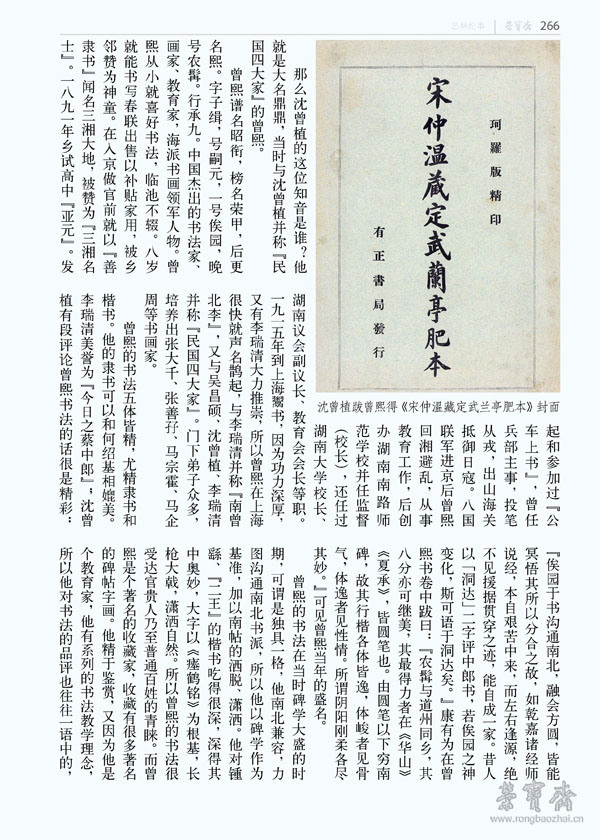 艺林纪事 荣宝斋 266
宋仲温藏定武蘭亭肥本
珂羅版精印
有正書局發行
沈曾植跋曾熙得《宋仲温藏定武兰亭肥本》封面
那么沈曾植的这位知音是谁？他
就是大名鼎鼎，当时与沈曾植并称『民
国四大家』的曾熙。
曾熙谱名昭衔，榜名荣甲，后更
名熙。字子缉，号嗣元，一号俟园，晚
号农髯。行承九。中国杰出的书法家、
画家、教育家，海派书画领军人物。曾
熙从小就喜好书法，临池不辍。八岁
就能书写春联出售以补贴家用，被乡
邻赞为神童。在入京做官前就以『善
隶书』闻名三湘大地，被赞为『三湘名
士』。一八九一年乡试高中『亚元』。发
起和参加过『公
车上书』，曾任
兵部主事，投笔
从戎，出山海关
抵御日寇。八国
联军进京后曾熙
回湘避乱，从事
教育工作，后创
办湖南南路师
范学校并任监督
（校长），还任过
湖南大学校长、
湖南议会副议长、教育会会长等职。
一九一五年到上海鬻书，因为功力深厚，
又有李瑞清大力推崇，所以曾熙在上海
很快就声名鹊起，与李瑞清并称『南曾
北李』，又与吴昌硕、沈曾植、李瑞清
并称『民国四大家』。门下弟子众多，
培养出张大千、张善孖、马宗霍、马企
周等书画家。
曾熙的书法五体皆精，尤精隶书和
楷书。他的隶书可以和何绍基相媲美。
李瑞清美誉为『今日之蔡中郎』；沈曾
植有段评论曾熙书法的话很是精彩：
『俟园于书沟通南北，融会方圆，皆能
冥悟其所以分合之故，如乾嘉诸经师
说经，本自艰苦中来，而左右逢源，绝
不见援据贯穿之迹，能自成一家。昔人
以「洞达」二字评中郎书，若俟园之神
变化，斯可语于洞达矣。』康有为在曾
熙书卷中跋曰：『农髯与道州同乡，其
八分亦可继美，其最得力者在《华山》
《夏承》，皆圆笔也。由圆笔以下穷南
碑，故其行楷各体皆逸，体峻者见骨
气，体逸者见性情。所谓阴阳刚柔各尽
其妙。』可见曾熙当年的盛名。
曾熙的书法在当时碑学大盛的时
期，可谓是独具一格，他南北兼容，力
图沟通南北书派，所以他以碑学作为
基准，加以南帖的洒脱、潇洒。他对锺
繇、『二王』的楷书吃得很深，深得其
中奥妙，大字以《瘗鹤铭》为根基，长
枪大戟，潇洒自然。所以曾熙的书法很
受达官贵人乃至普通百姓的青睐。而曾
熙是个著名的收藏家，收藏有很多著名
的碑帖字画。他精于鉴赏，又因为他是
个教育家，他有系列的书法教学理念，
所以他对书法的品评也往往一语中的，
荣宝斋
www.rongbaozhai.cn